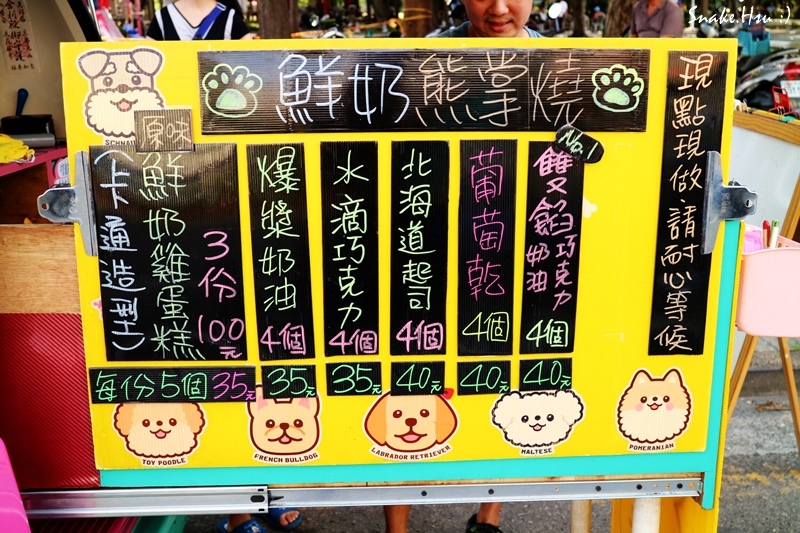 Snake.Hsu :)
鮮奶熊掌燒
現點現做.請耐心等候
原味
(卡通造型)
鮮奶雞蛋糕
3份100元
每份5個35元
爆漿奶油
4個
35元
水滴巧克力
4個
35元
北海道起司
4個
40元
葡萄乾
4個
40元
No.1
雙餡巧克力奶油
4個
40元
SCHNAU
TOY POODLE
FRENCH BULLDOG
LABRADOR RETRIEVER
MALTESE
POMERANIAN